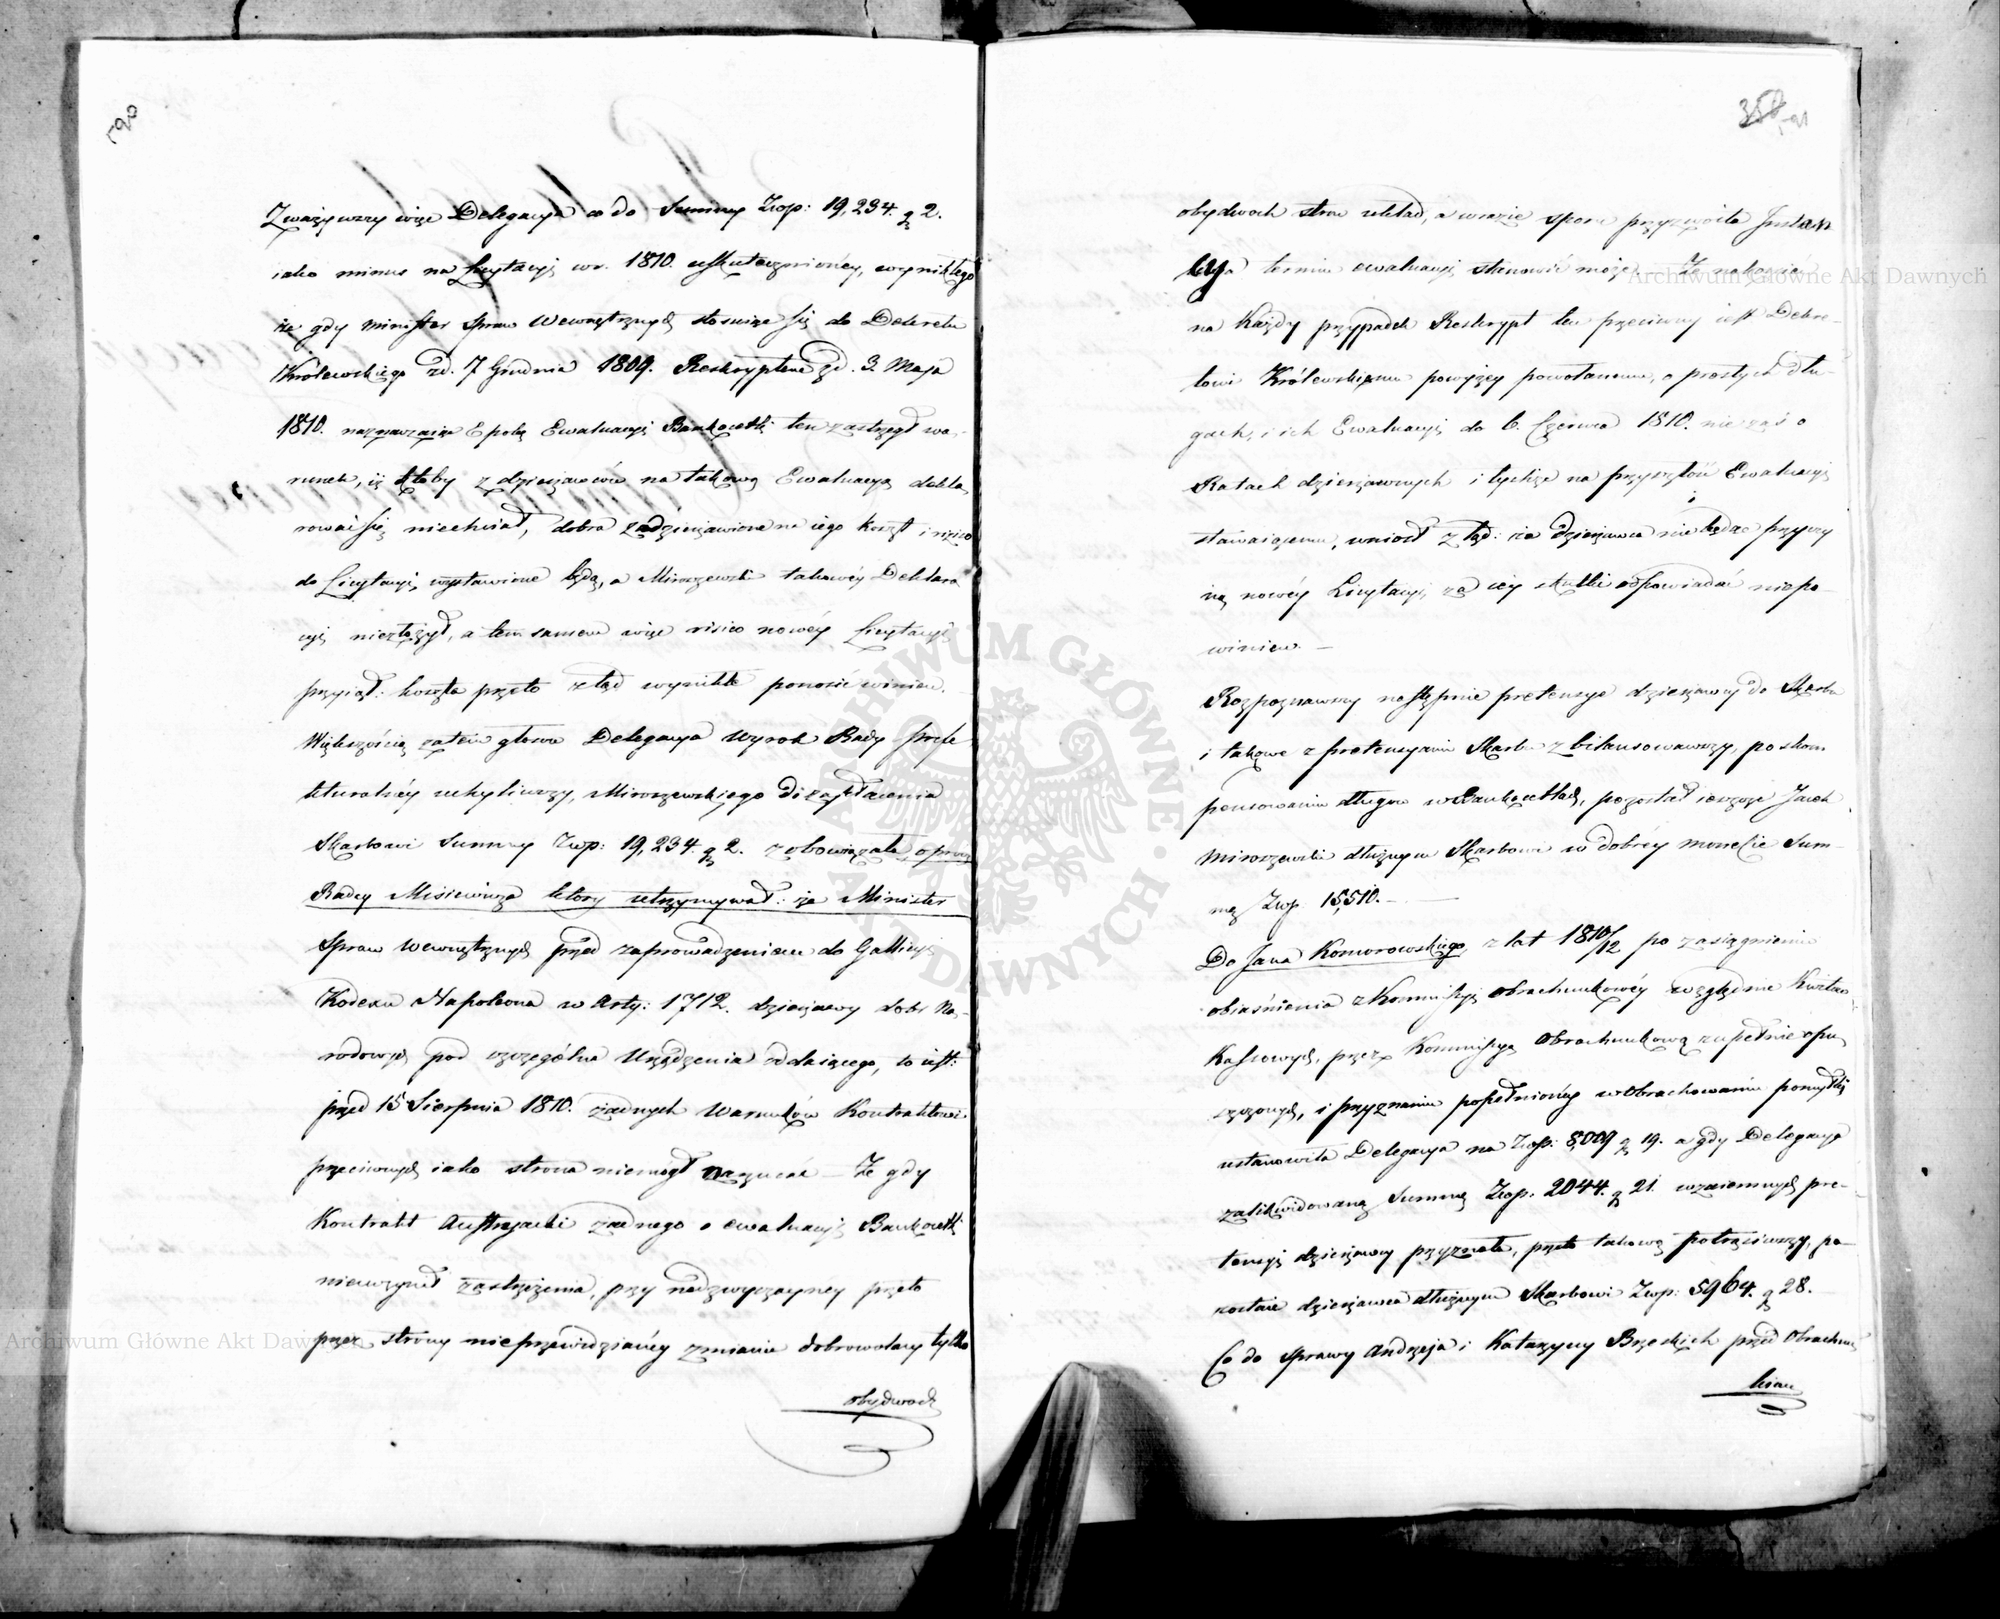 590
Zważywszy więc Delegacya co do Summy Złop: 19,234. g 2.
iako minus na Licytacyi w r. 1810. uskutecznioney, wynikłego
że gdy Minister Spraw Wewnętrznych stosuiąc się do Dekretu
Królewskiego z d. 7 Grudnia 1809. Reskryptem z d. 3. Maja
1810. naznaczaiąc Epokę Ewaluacyi Bankocetli ten zastrzegł wa-
runek, iż ktoby z dzierżawców na takową Ewaluacyą dekla-
rować się niechciał, dobra zadzierżawione na iego koszt i risico
do Licytacyi wystawione będą, a Miroszewski takowéy Deklara
cyi niezłożył, a tem samem więc risico nowéy Licytacyi
przyiął: koszta przeto ztąd wynikłe ponosić winien.
Większością zatem głosów Delegacya Wyrok Rady Prefe
kturalnéy uchyliwszy, Miroszewskiego do zapłacenia
Skarbowi Summy Złp: 19,234. g 2. zobowiązała, oprócz
Radcy Misiewicza który utrzymywał: że Minister
Spraw Wewnętrznych przed zaprowadzeniem do Gallicyi
Kodexu Napoleona w Arty: 1712. dzierżawy dóbr Na-
rodowych pod szczególne Urządzenia oddaiącego, to iest:
przed 15 Sierpnia 1810. żadnych Warunków Kontraktowi
przeciwnych iako strona niemógł narzucać — Że gdy
Kontrakt Austryacki żadnego o ewaluacyi Bankocetli
nieuczynił zastrzeżenia, przy nadzwyczayney przeto
przez strony nieprzewidzianéy zmianie dobrowolny tylko
obydwoch
358 591
obydwoch stron układ, a w razie sporu przyzwoita Instan
cya termin ewaluacyi stanowić może. Że nakoniec
na każdy przypadek Reskrypt ten przeciwny iest Dekre-
towi Królewskiemu powyżey powołanemu, o prostych dłu-
gach, i ich Ewaluacyi do 6. Czerwca 1810. nie zaś o
Ratach dzierżawnych i tychże na przyszłość Ewaluacyi
stawaiącemu, wniosł ztąd: że dzierżawca nie będąc przyczy
ną nowéy Licytacyi, za iéy skutki odpowiadać niepo-
winien. —
Rozpoznawszy następnie pretensye dzierżawcy do Skarbu
i takowe z pretensyami Skarbu zbilansowawszy, po skom
pensowaniu długu w Bankocetlach, pozostał ieszcze Jacek
Miroszewski dłużnym Skarbowi w dobréy monecie Sum-
mę Złp. 15,510. —
Do Jana Komorowskiego z lat 1810/12 po zasiągnieniu
obiaśnienia z Kommissyi Obrachunkowéy względnie Kwitów
Kassowych, przez Kommissyą Obrachunkową zupełnie opu
szczonych, i przyznaniu popełnionéy w Obrachowaniu pomyłki
ustanowiła Delegacya na Złp: 8,009 g 19. a gdy Delegacya
zalikwidowaną Summę Złop. 2044. g 21. wzaiemnych pre-
tensyi dzierżawcy przyznała, przeto takową potrąciwszy, po-
zostaie dzierżawca dłużnym Skarbowi Złop: 5964. g 28.
Co do Sprawy Andrzeja i Katarzyny Brzeskich przed Obrachun
kiem
Archiwum Główne Akt Dawnych
Archiwum Główne Akt Dawnych
ARCHIWUM GŁÓWNE AKT DAWNYCH